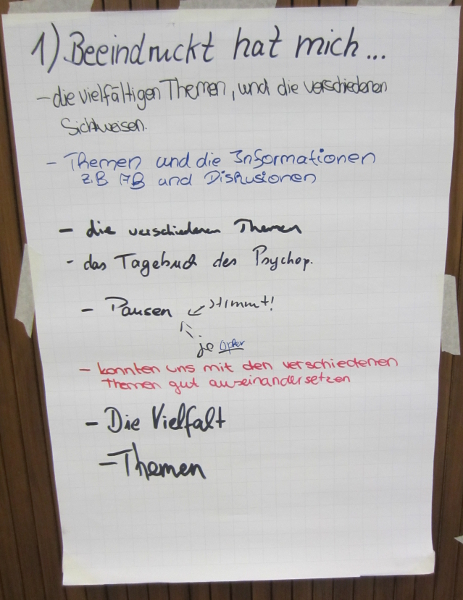 1) Beeindruckt hat mich...
- die vielfältigen Themen, und die verschiedenen
Sichtweisen.
- Themen und die Informationen
z.B AB und Diskusionen
- die verschiedenen Themen
- das Tagebuch des Psychop.
- Pausen ← stimmt!
je
- konnten uns mit den verschiedenen
Themen gut auseinandersetzen
- Die Vielfalt
- Themen